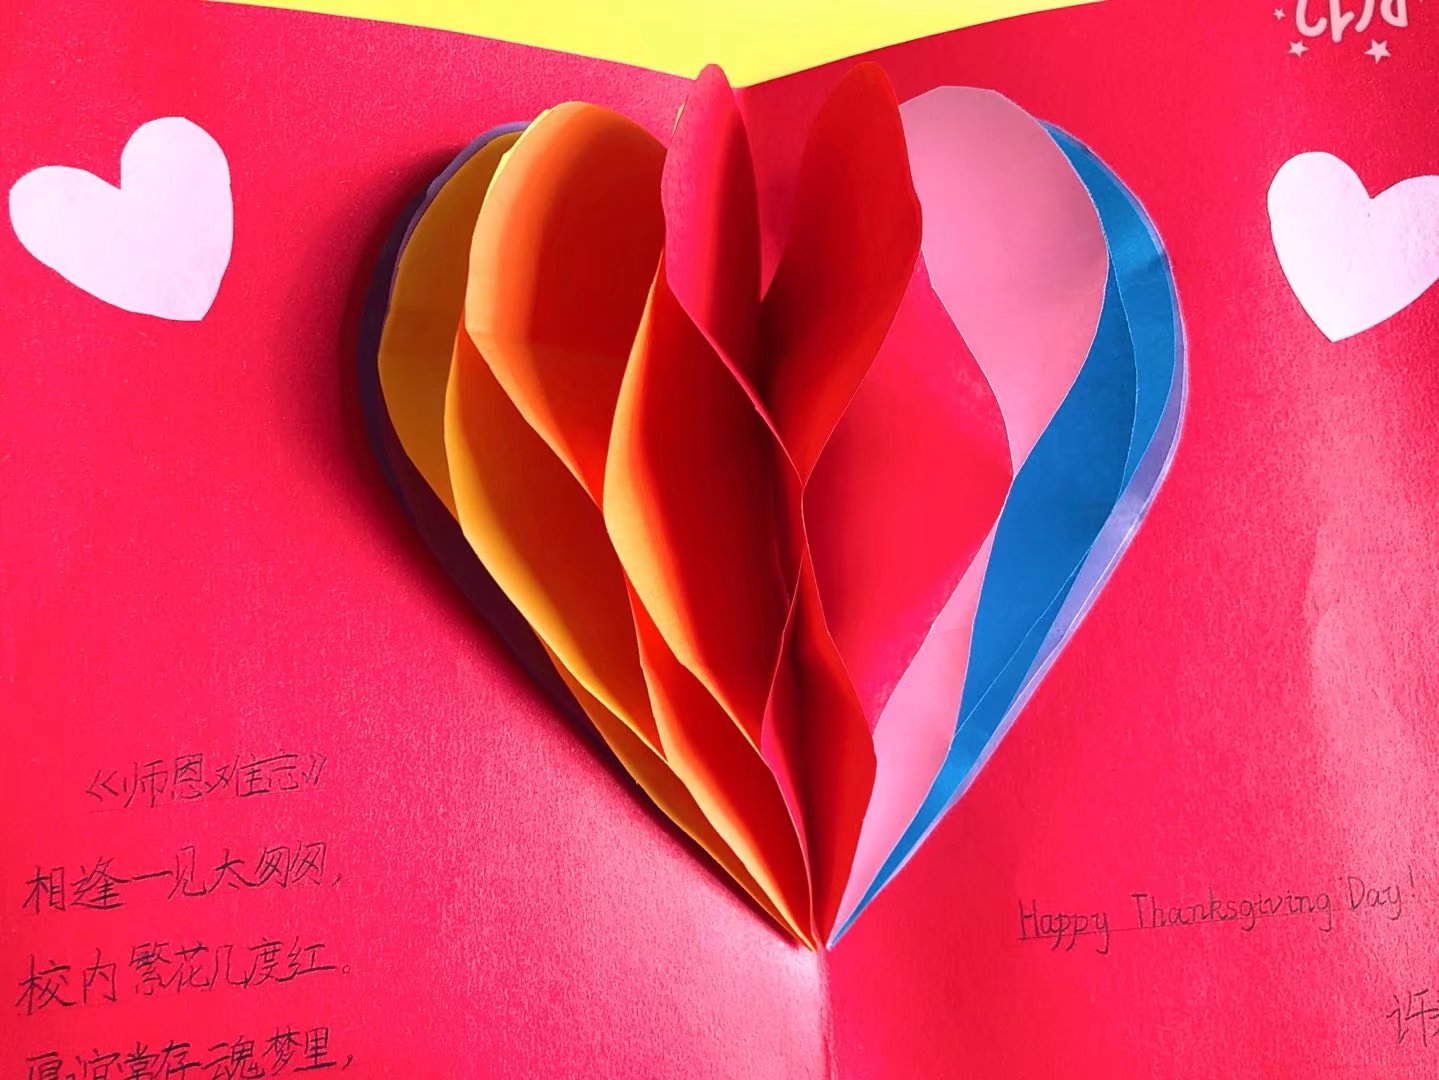 《师恩难忘》
相逢一见太匆匆,
校内繁花几度红。
厚谊常存魂梦里,
Happy Thanksgiving Day!
许